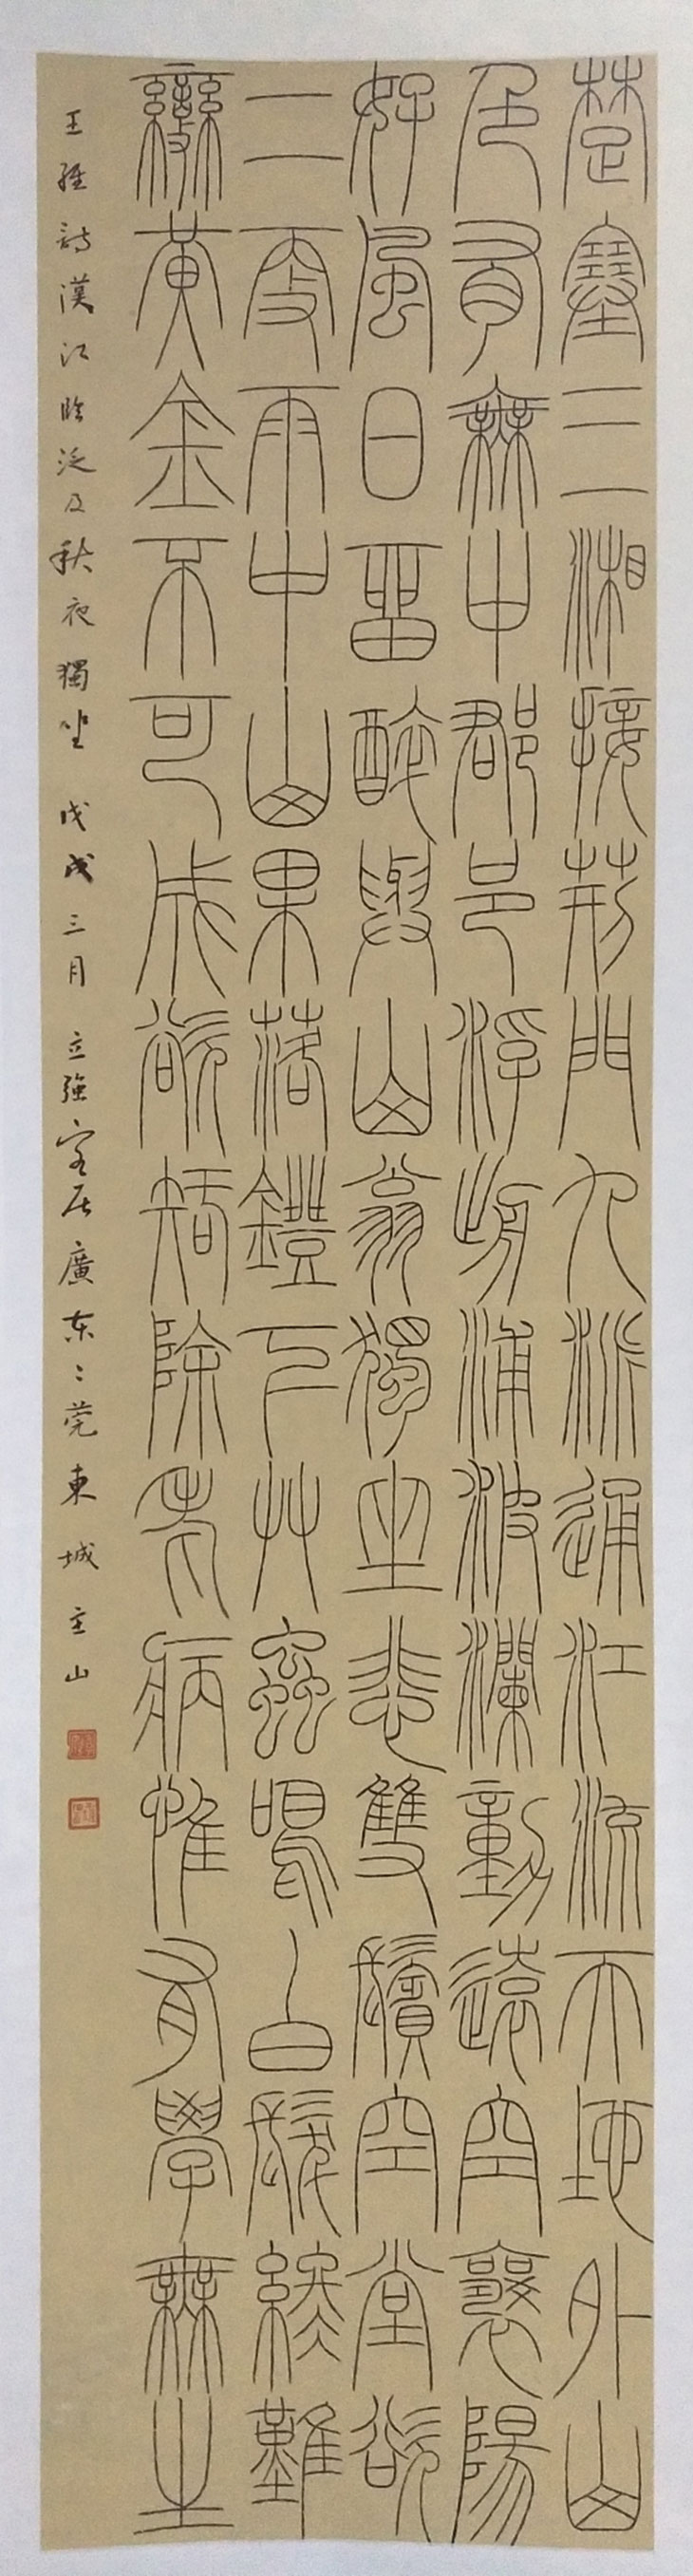 楚塞三湘接荊門九派通江流天地外山
色有無中郡邑浮前浦波瀾動遠空襄陽
好風日留醉與山翁獨坐悲雙鬢空堂欲
二更雨中山果落鐙下艸蟲鳴白髮終難
變黃金不可成欲知除老病惟有學無生
王維詩漢江臨泛及秋夜獨坐 戊戌三月 立強客居廣东〻莞東城主山